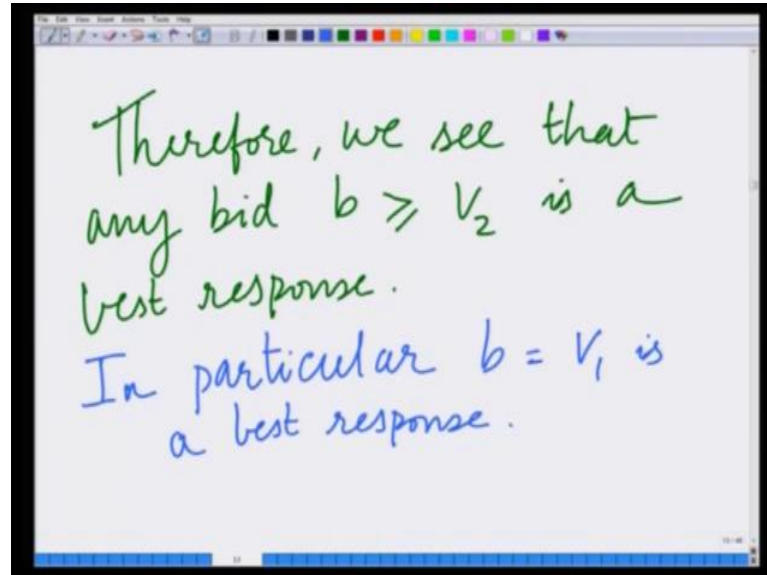 File Edit View Insert Actions Tools Help
Therefore, we see that
any bid b ⩾ V₂ is a
best response.
In particular b = V₁ is
a best response.